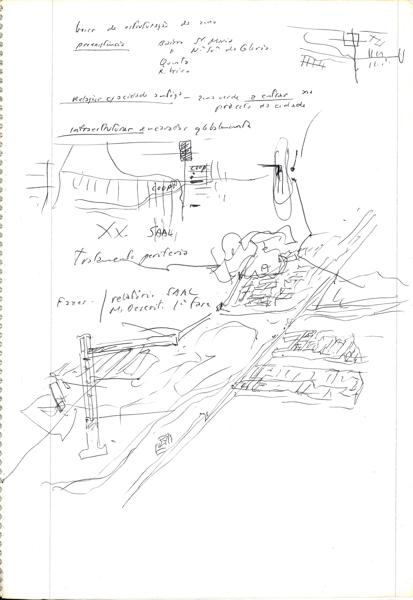 base de estruturação da zona
preexistência: Bairro Sta Maria
e N. Srª da Glória
Quinta
Ribeira
Relação c/ cidade antiga – zona verde a entrar no
processo na cidade
Infraestruturar e ... globalmente
coop.
coop.
XX. SAAL
Tratamento periferia
Fazer. / relatório SAAL
M. Descrit. 1ª fase